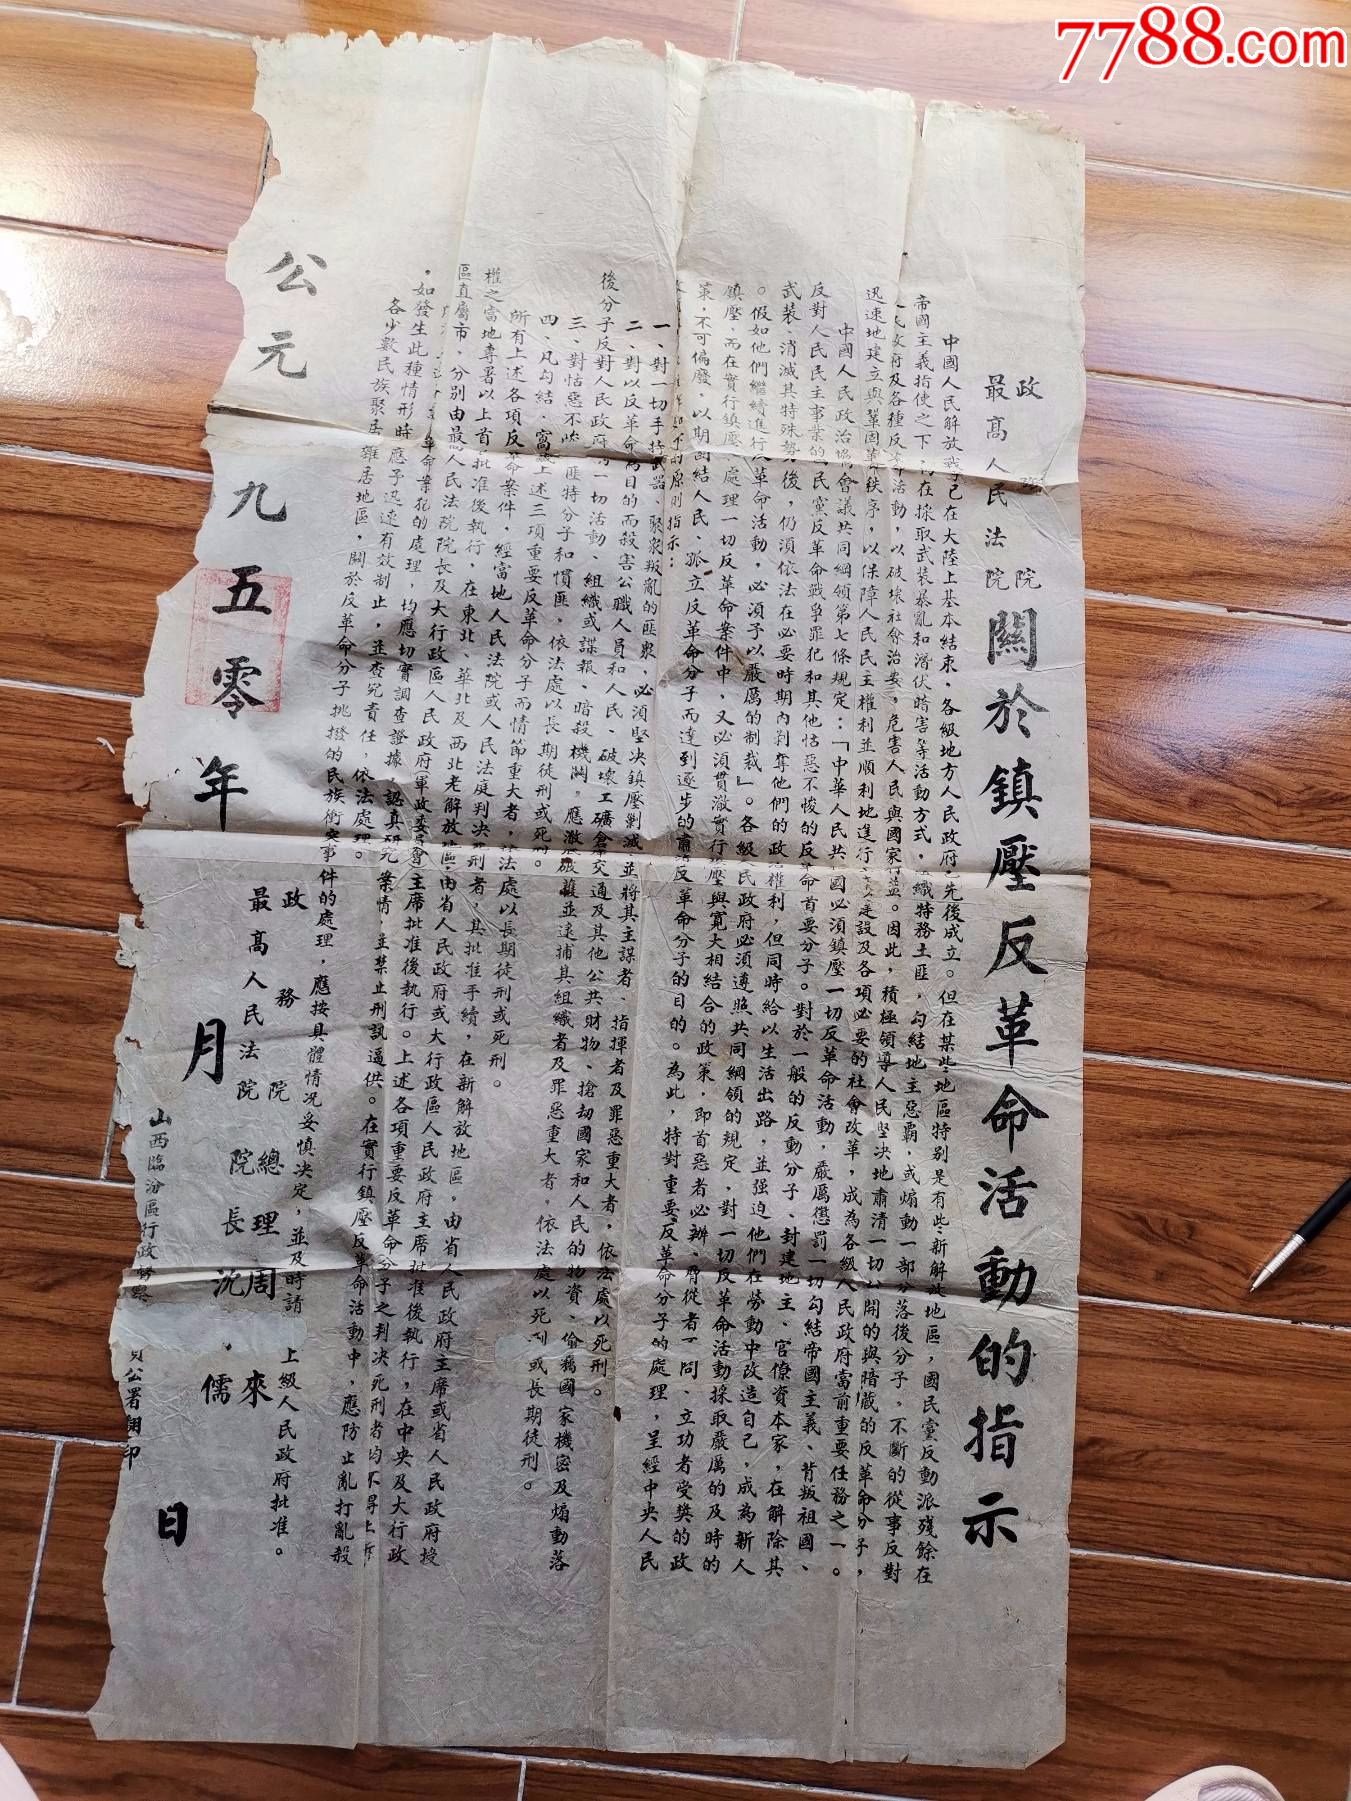 7788.com
政務院
最高人民法院
關於鎮壓反革命活動的指示
中國人民解放戰爭已在大陸上基本結束,各級地方人民政府已先後成立。但在某些地區特別是有些新解放地區,國民黨反動派殘餘在
帝國主義指使之下在採取武裝暴亂和潛伏暗害等活動方式,組織特務土匪,勾結地主惡霸,或煽動一部分落後分子,不斷的從事反對
人民政府及各種反革命活動,以破壞社會治安,危害人民與國家利益。因此,積極領導人民堅決地肅清一切公開的與暗藏的反革命分子,
迅速地建立與鞏固革命秩序,以保障人民民主權利並順利地進行建設及各項必要的社會改革,成為各級人民政府當前重要任務之一。
中國人民政治協商會議共同綱領第七條規定:「中華人民共和國必須鎮壓一切反革命活動,嚴厲懲罰一切勾結帝國主義、背叛祖國、
反對人民民主事業的國民黨反革命戰爭罪犯和其他怙惡不悛的反革命首要分子。對於一般的反動分子、封建地主、官僚資本家,在解除其
武裝、消滅其特殊勢力後,仍須依法在必要時期內剝奪他們的政治權利,但同時給以生活出路,並强迫他們在勞動中改造自己,成為新人
。假如他們繼續進行反革命活動,必須予以嚴厲的制裁」。各級人民政府必須遵照共同綱領的規定,對一切反革命活動採取嚴厲的及時的
鎮壓,而在實行鎮壓處理一切反革命案件中,又必須貫澈實行鎮壓與寬大相結合的政策,即首惡者必辦、脅從者不問、立功者受獎的政
策,不可偏廢,以期團結人民、孤立反革命分子而達到逐步的肅清反革命分子的目的。為此,特對重要反革命分子的處理,呈經中央人民
如下的原則指示:
一、對一切手持武器、聚衆叛亂的匪衆,必須堅決鎮壓剿滅,並將其主謀者、指揮者及罪惡重大者,依法處以死刑。
二、對以反革命為目的而殺害公職人員和人民、破壞工礦倉庫交通及其他公共財物、搶劫國家和人民的物資、偷竊國家機密及煽動落
後分子反對人民政府的一切活動、組織或諜報、暗殺機關,應澈底破獲並逮捕其組織者及罪惡重大者,依法處以死刑或長期徒刑。
三、對怙惡不悛匪特分子和慣匪,依法處以長期徒刑或死刑。
四、凡勾結、窩藏上述三項重要反革命分子而情節重大者,依法處以長期徒刑或死刑。
所有上述各項反革命案件,經當地人民法院或人民法庭判決死刑者,其批准手續,在新解放地區,由省人民政府主席或省人民政府授
權之當地專署以上首長批准後執行,在東北、華北及西北老解放區由省人民政府或大行政區人民政府主席批准後執行,在中央及大行政
區直屬市,分別由最高人民法院院長及大行政區人民政府(軍政委員會)主席批准後執行。上述各項重要反革命分子之判決死刑者均不得上訴
革命案犯的處理,均應切實調查證據,認真研究案情,並禁止刑訊逼供。在實行鎮壓反革命活動中,應防止亂打亂殺
。如發生此種情形時應予迅速有效制止,並查究責任,依法處理。
各少數民族聚居雜居地區,關於反革命分子挑撥的民族衝突事件的處理,應按具體情況妥慎決定,並及時請上級人民政府批准。
政務院總理周來
最高人民法院院長沈儒
公元九五零年月日
山西臨汾區行政督察員公署翻印